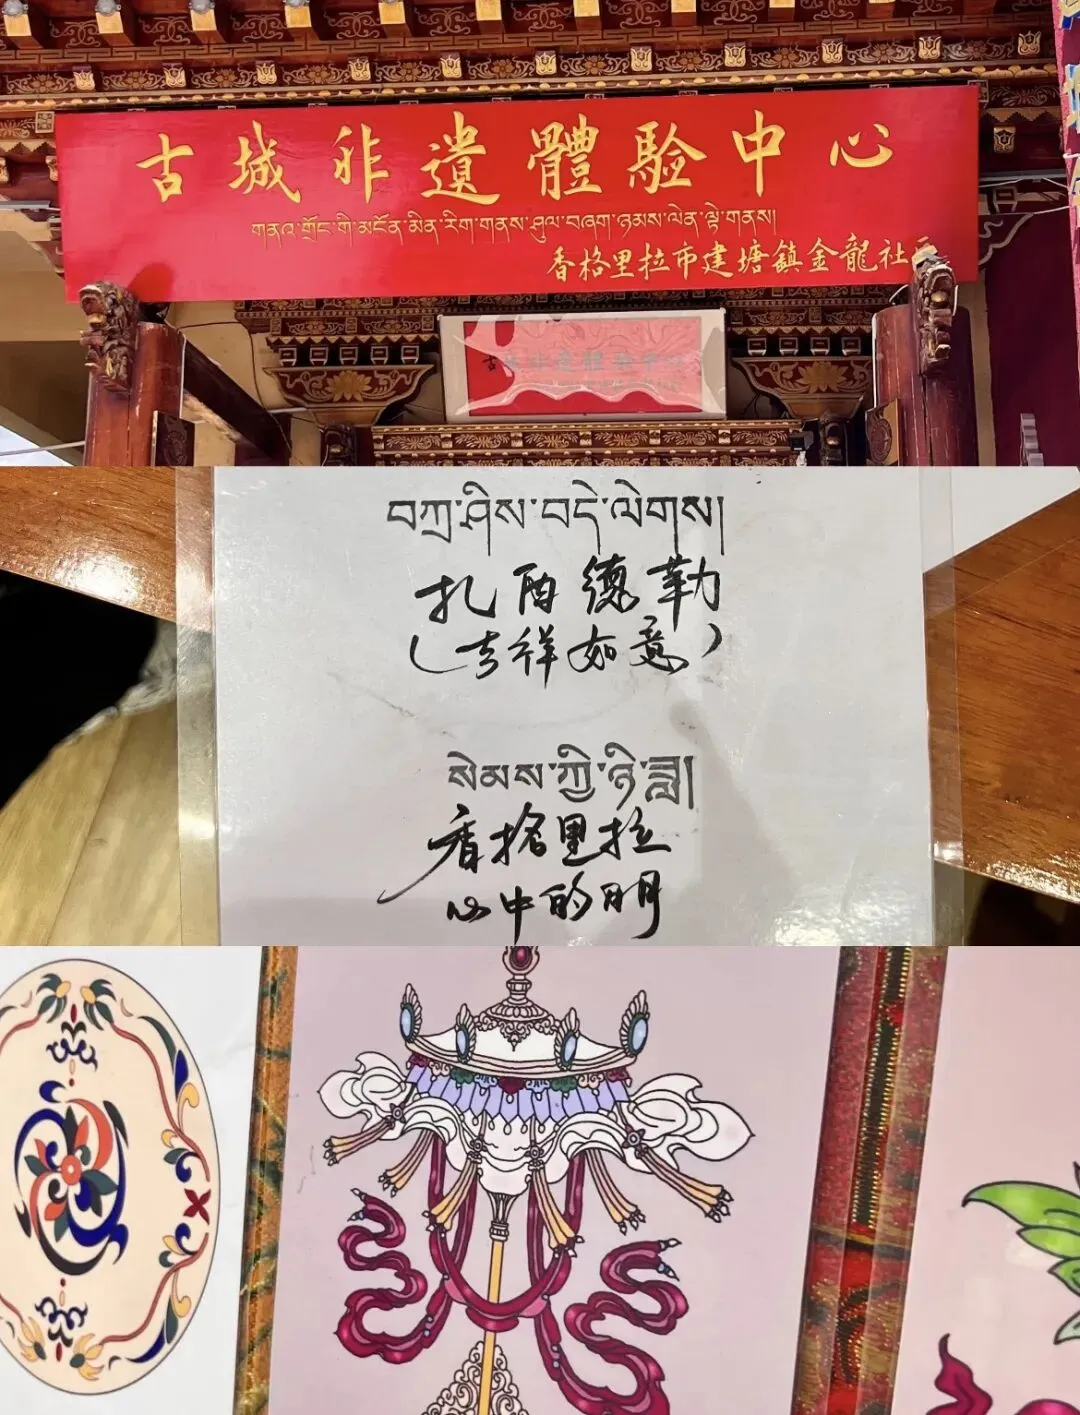 古城非遺體驗中心
གནའ་གྲོང་གི་མངོན་མིན་རིག་གནས་ཤུལ་བཞག་ཉམས་ལེན་ལྟེ་གནས།
香格里拉市建塘鎮金龍社
བཀྲ་ཤིས་བདེ་ལེགས།
扎西德勒
(吉祥如意)
སེམས་ཀྱི་ཉི་ཟླ།
香格里拉
心中的日月